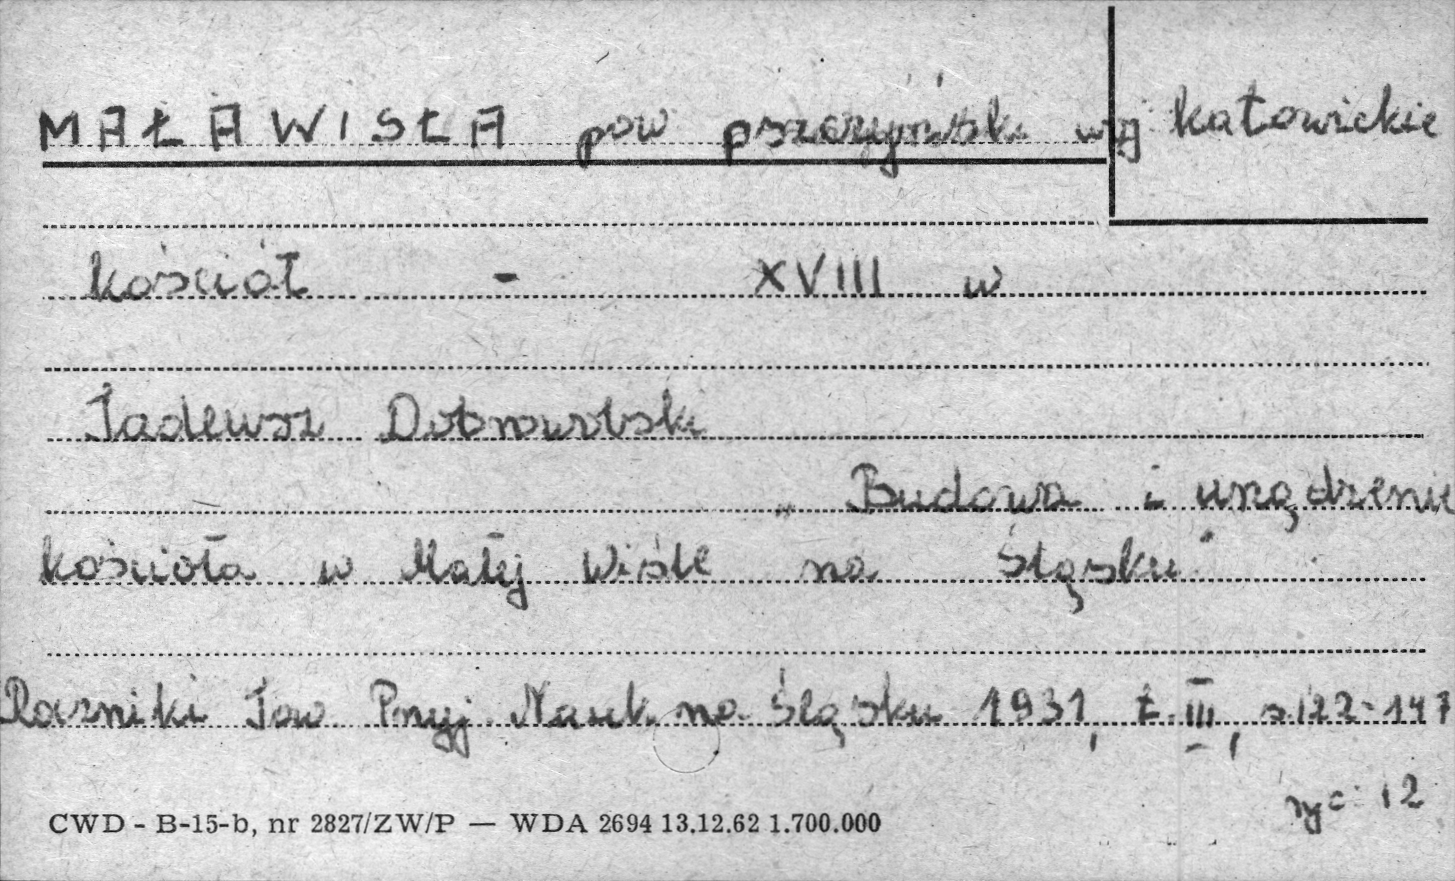 MAŁA WISŁA pow pszczyński woj katowickie
kościół - XVIII w
Tadeusz Dobrowolski
„Budowa i urządzenie
kościoła w Małej Wiśle na Śląsku"
Roczniki Tow Przyj. Nauk na Śląsku 1931, t. III, s. 122-147
ryc 12
CWD - B-15-b, nr 2827/ZW/P — WDA 2694 13.12.62 1.700.000